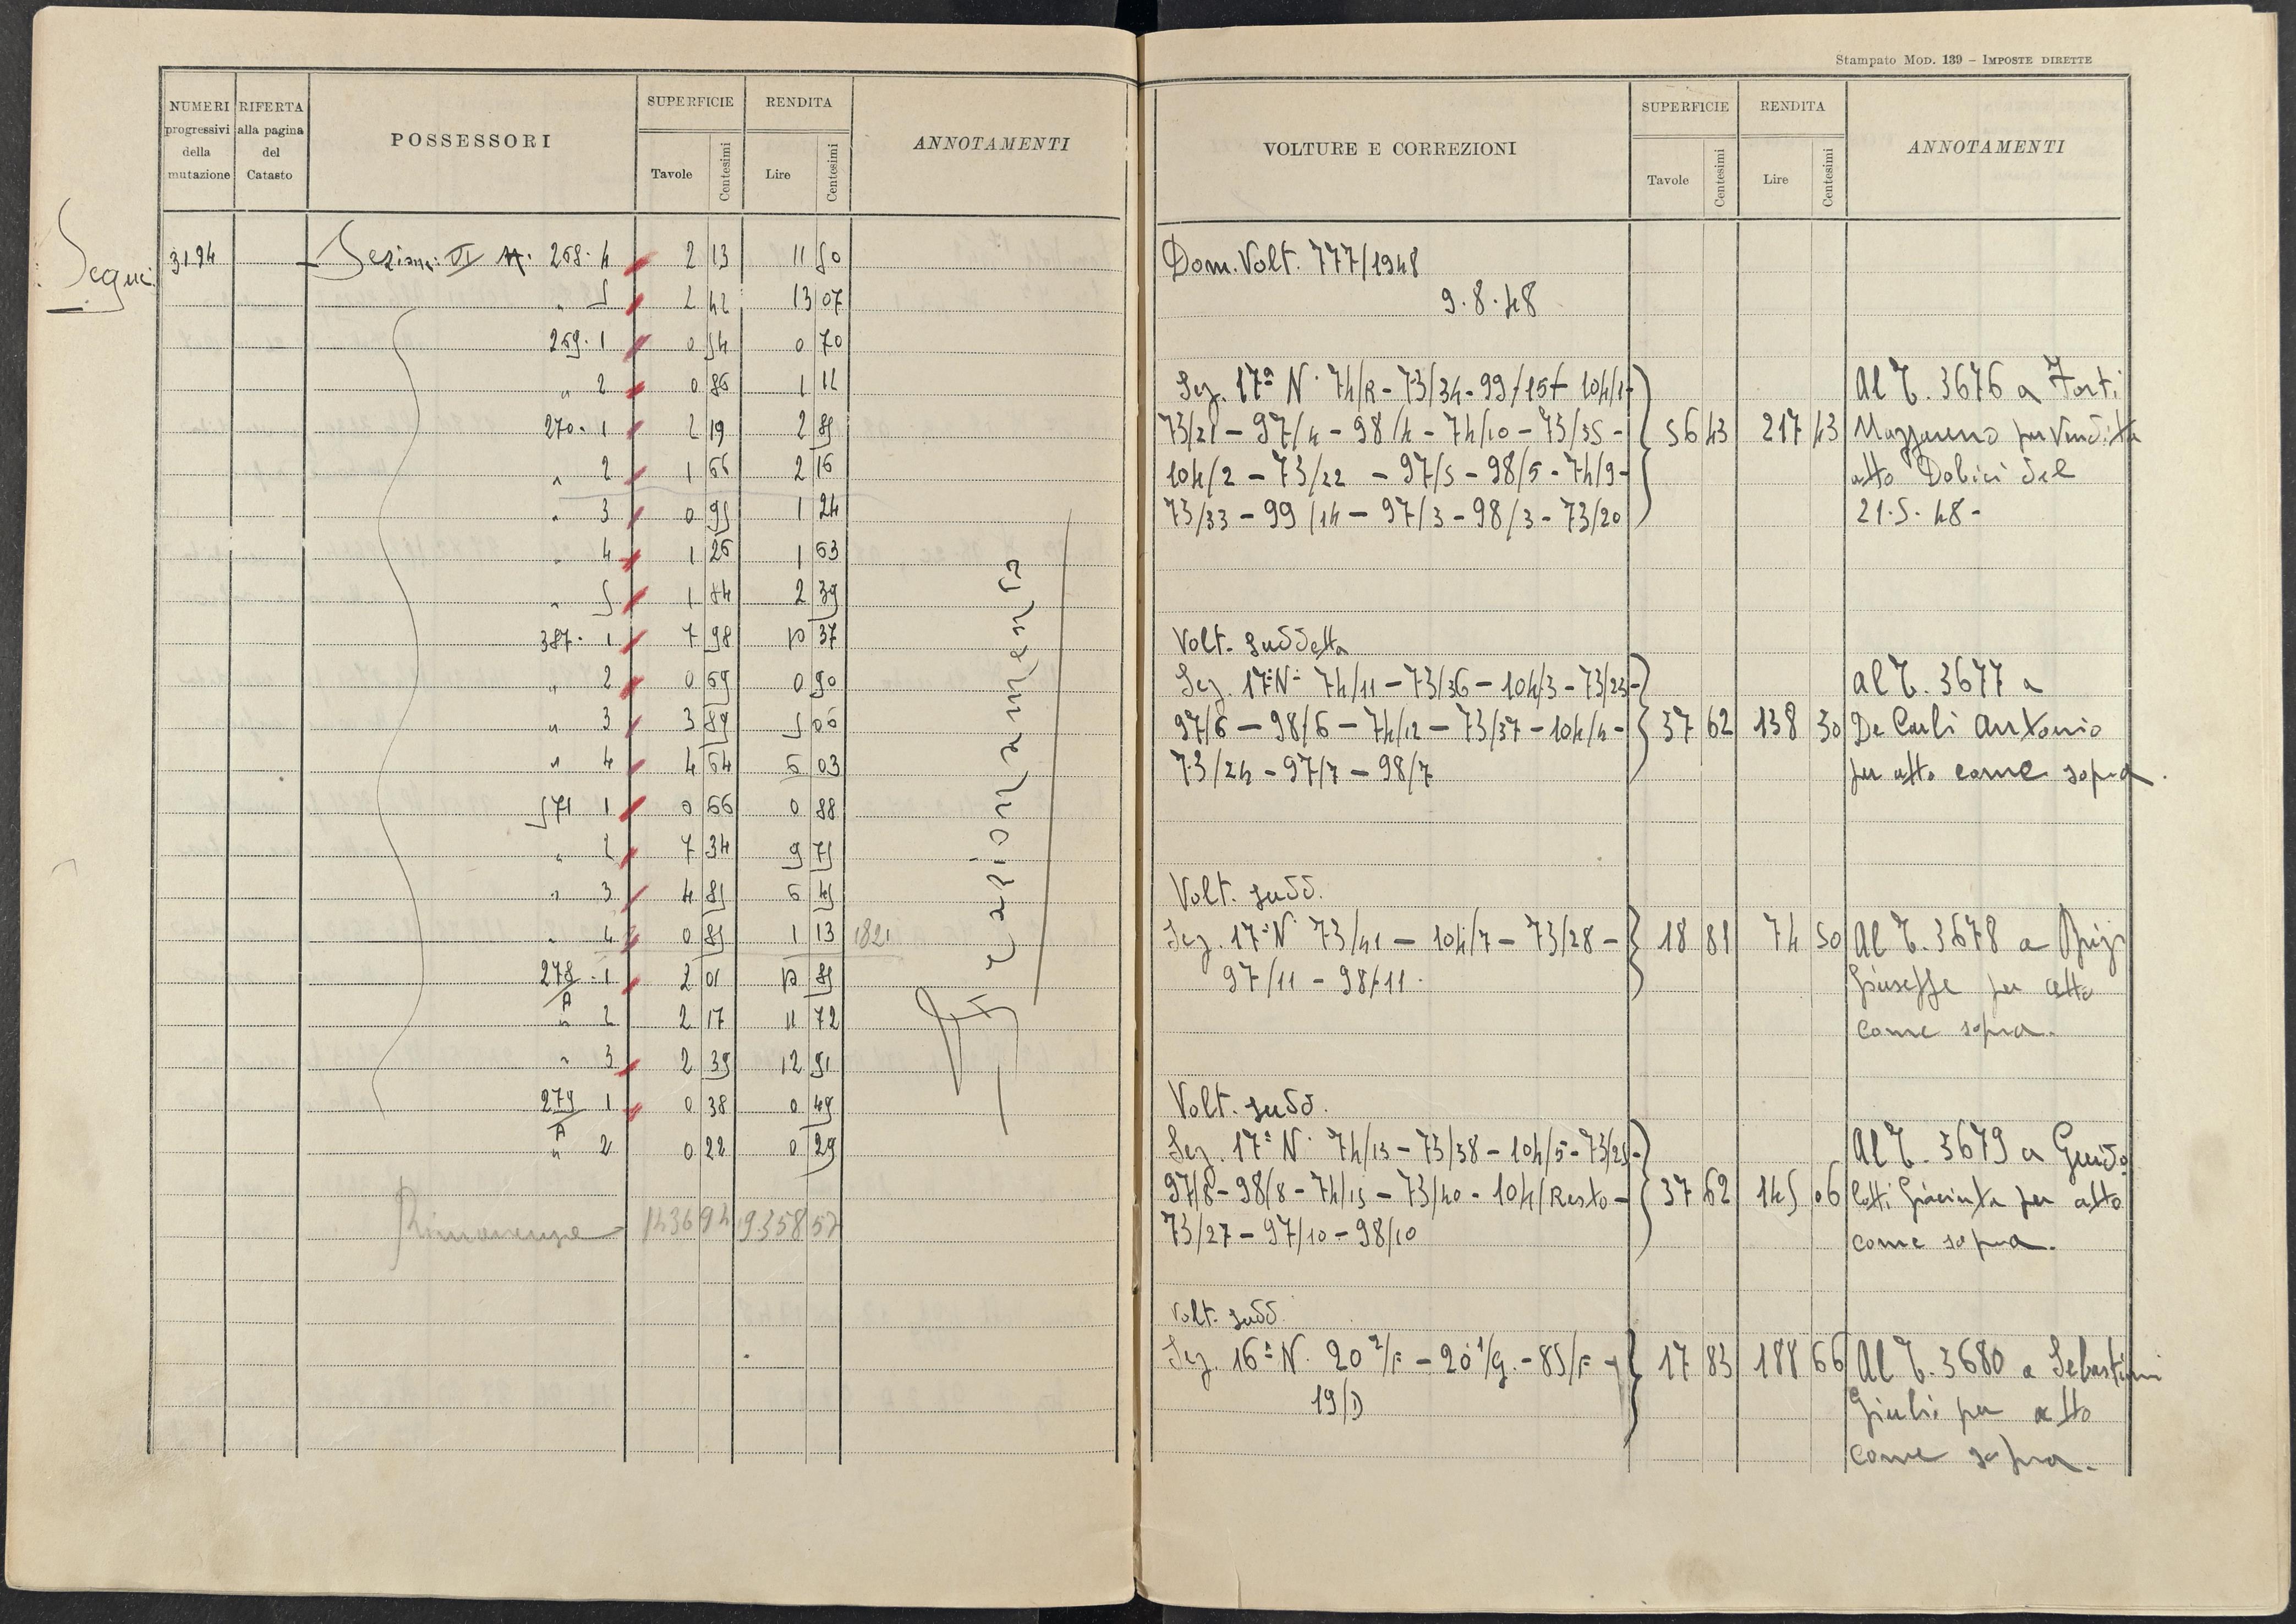 NUMERI progressivi della mutazione
RIFERTA alla pagina del Catasto
POSSESSORI
SUPERFICIE
Tavole Centesimi
RENDITA
Lire Centesimi
ANNOTAMENTI
Segue:
3194 Sezione VI N. 268. 4 2 13 11 50
" 5 2 42 13 07
269. 1 0 54 0 70
" 2 0 86 1 11
270. 1 2 19 2 85
" 2 1 66 2 16
" 3 0 95 1 24
" 4 1 26 1 63
" 5 1 84 2 39
387. 1 7 98 10 37
" 2 0 69 0 90
" 3 3 89 5 06
" 4 4 64 6 03
571 1 0 66 0 88
" 2 7 34 9 75
" 3 4 85 6 45
" 4 0 85 1 13 1821
278/A . 1 2 01 10 85
" 2 2 17 11 72
" 3 2 39 12 91
279/A 1 0 38 0 49
" 2 0 22 0 29
Rimanenze 1436 94 9358 57
Frazionamento
Stampato MOD. 139 - IMPOSTE DIRETTE
VOLTURE E CORREZIONI
SUPERFICIE
Tavole Centesimi
RENDITA
Lire Centesimi
ANNOTAMENTI
Dom. Volt. 777/1948
9.8.48
Sez. 17ª N. 74/R - 73/34 - 99/15 - 104/1 - Al T. 3676 a Forti
73/21 - 97/4 - 98/4 - 74/10 - 73/35 - 56 43 217 43 Nazzareno per vendita
104/2 - 73/22 - 97/5 - 98/5 - 74/9 - atto Dolici del
73/33 - 99/14 - 97/3 - 98/3 - 73/20 21.5.48 -
Volt. suddetta
Sez. 17ª N. 74/11 - 73/36 - 104/3 - 73/23 - Al T. 3677 a
97/6 - 98/6 - 74/12 - 73/37 - 104/4 - 37 62 138 30 De Carli Antonio
73/24 - 97/7 - 98/7 per atto come sopra.
Volt. sudd.
Sez. 17ª N. 73/41 - 104/7 - 73/28 - 18 81 74 50 Al T. 3678 a
97/11 - 98/11. Giuseppe per atto
come sopra.
Volt. sudd.
Sez. 17ª N. 74/13 - 73/38 - 104/5 - 73/25 - Al T. 3679 a Guido
97/8 - 98/8 - 74/15 - 73/40 - 104/Resto - 37 62 145 06 lotti Giacinta per atto
73/27 - 97/10 - 98/10 come sopra.
Volt. sudd.
Sez. 16ª N. 20²/F - 20¹/G. - 85/F - 17 83 188 66 Al T. 3680 a Sebastiani
19/D Giulio per atto
come sopra.